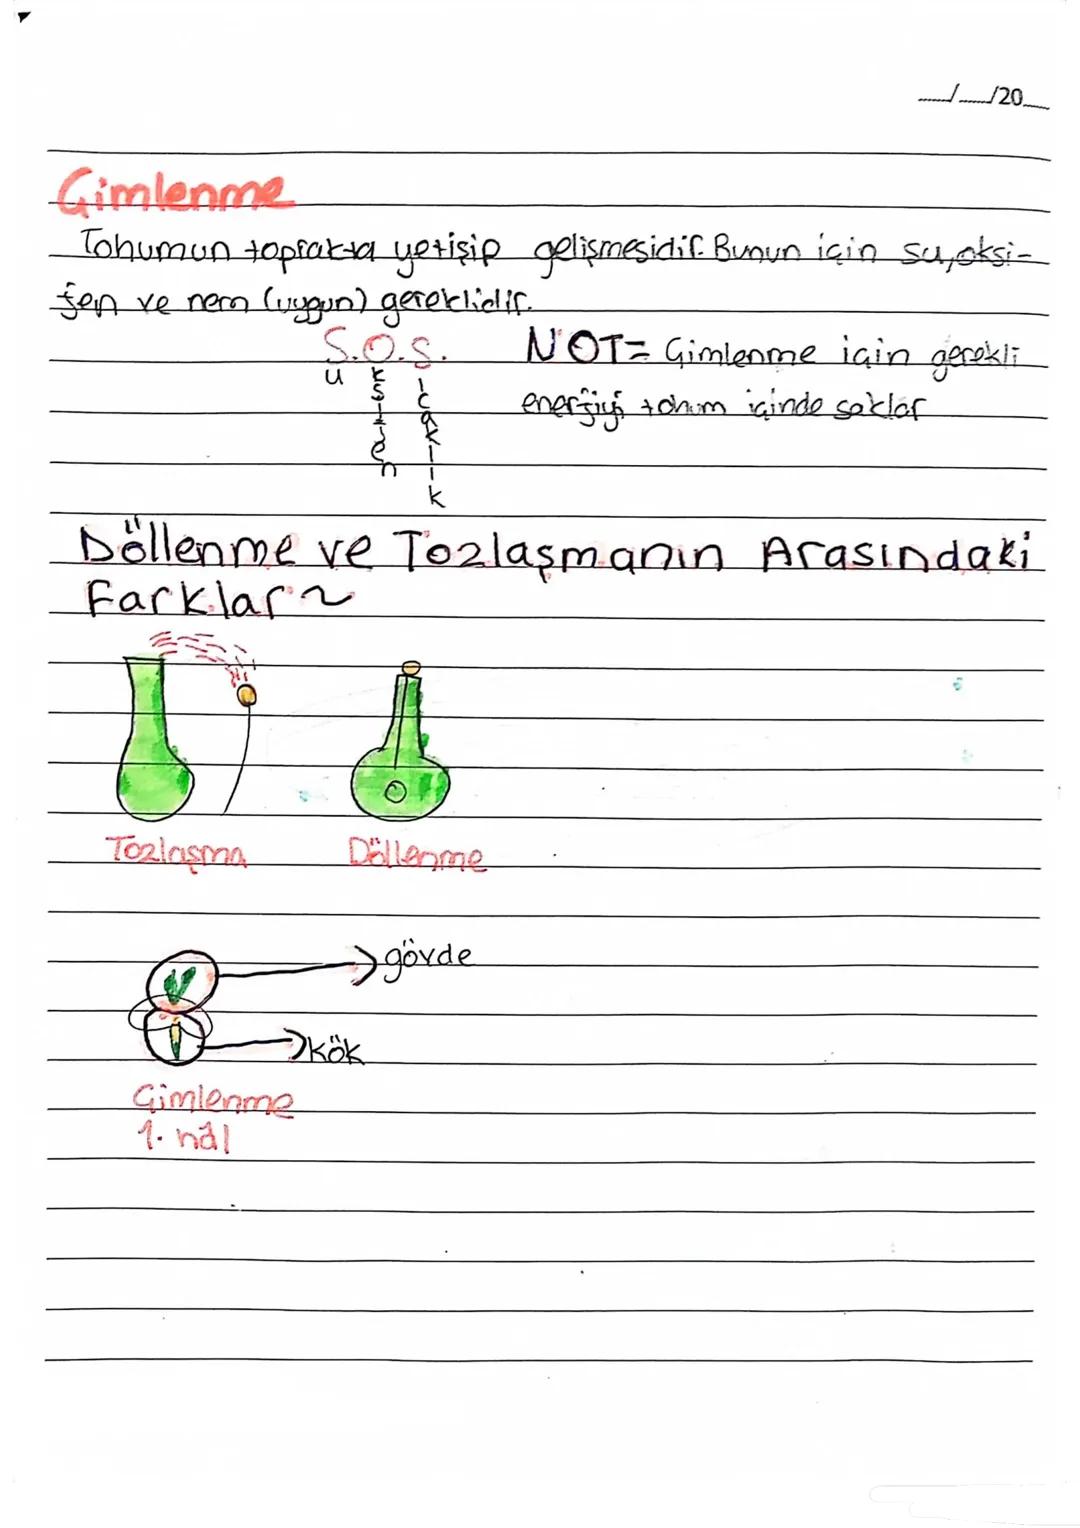 __/__/20__
Çimlenme
Tohumun toprakta yetişip gelişmesidir. Bunun için su, oksi-
jen ve nem (uygun) gereklidir.
S.O.S.
u
ksijen
ıcaklık
NOT= Çimlenme için gerekli
enerjiyi tohum içinde saklar
Döllenme ve Tozlaşmanın Arasındaki
Farklar~
Tozlaşma Döllenme
gövde
kök
Çimlenme
1. hâl